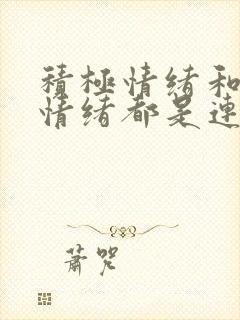 積極情緒和
情緒都是連
蕭咒